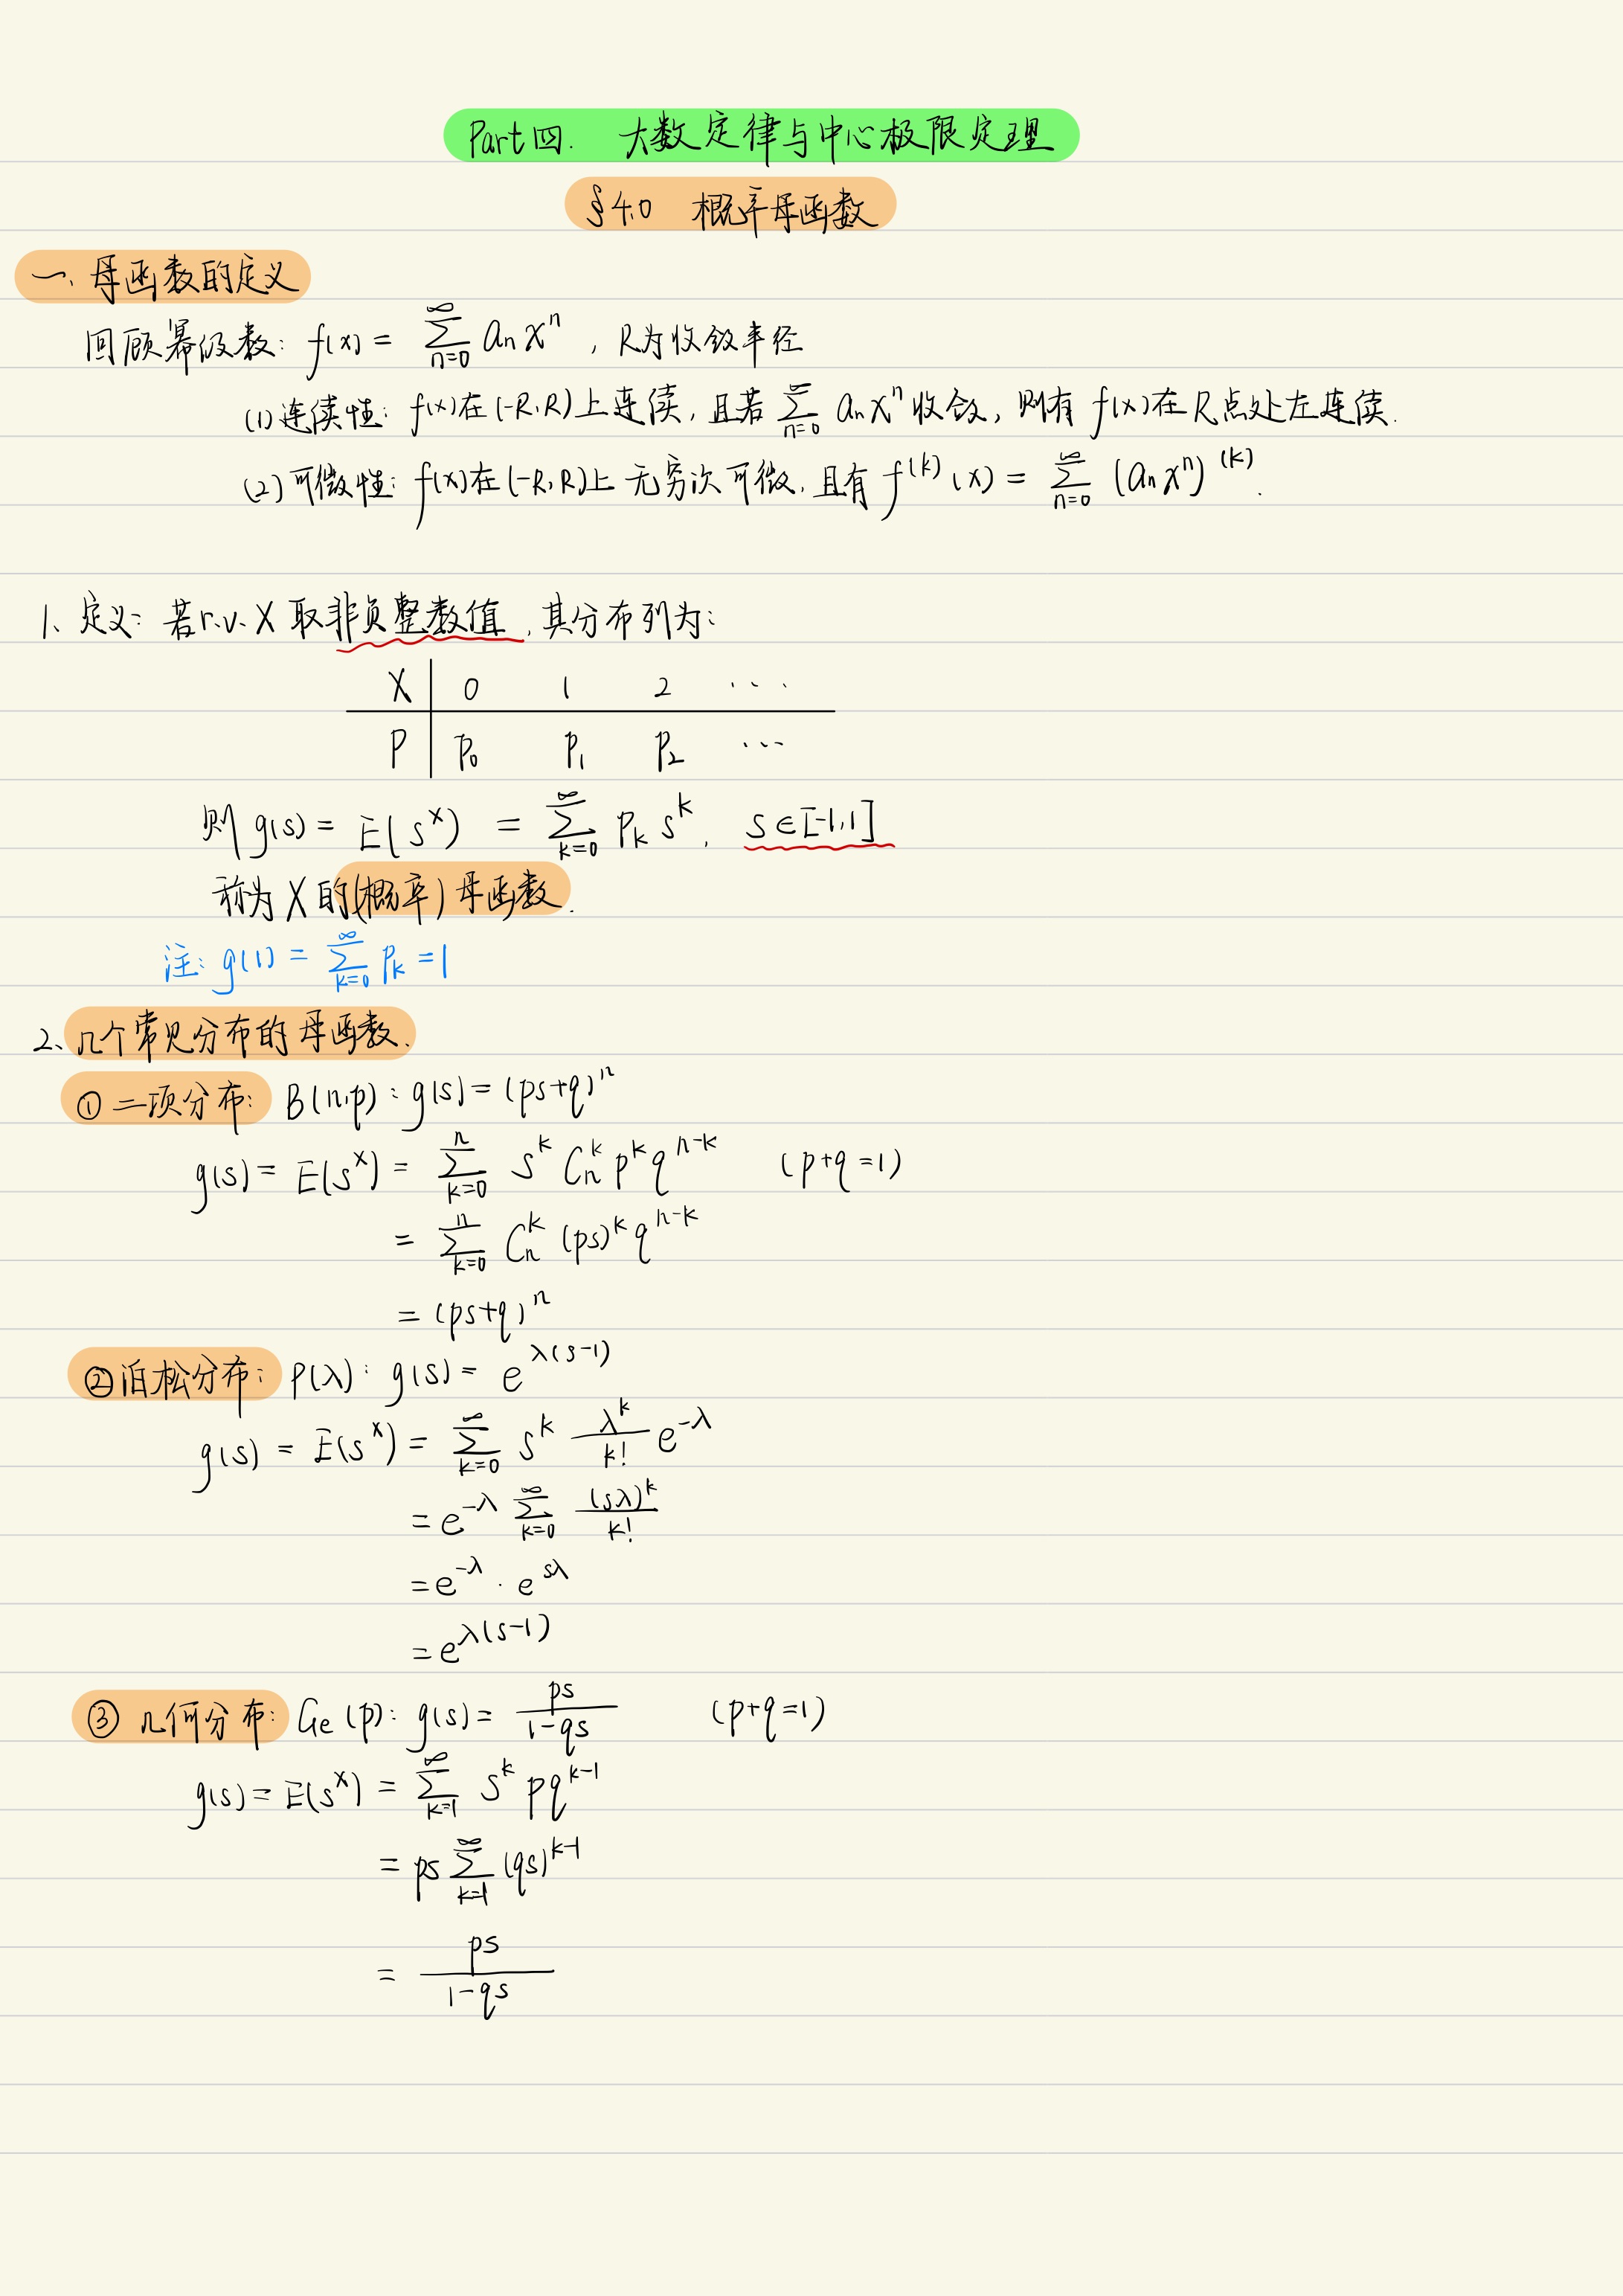 Part四. 大数定律与中心极限定理
§4.0 概率母函数
一、母函数的定义
回顾幂级数: f(x) = ∑_{n=0}^{∞} a_n x^n , R为收敛半径
(1)连续性: f(x)在(-R,R)上连续, 且若 ∑_{n=0}^{∞} a_n x^n 收敛, 则有 f(x)在R点处左连续.
(2)可微性: f(x)在(-R,R)上 无穷次可微, 且有 f^{(k)}(x) = ∑_{n=0}^{∞} (a_n x^n)^{(k)}.
1、定义: 若r.v. X 取非负整数值, 其分布列为:
X | 0 1 2 ···
P | p_0 p_1 p_2 ···
则 g(s) = E(s^X) = ∑_{k=0}^{∞} p_k s^k, s∈[-1,1]
称为 X 的(概率)母函数.
注: g(1) = ∑_{k=0}^{∞} p_k = 1
2、几个常见分布的母函数.
① 二项分布: B(n,p): g(s) = (ps+q)^n
g(s) = E(s^X) = ∑_{k=0}^{n} s^k C_n^k p^k q^{n-k} (p+q=1)
= ∑_{k=0}^{n} C_n^k (ps)^k q^{n-k}
= (ps+q)^n
② 泊松分布: P(λ): g(s) = e^{λ(s-1)}
g(s) = E(s^X) = ∑_{k=0}^{∞} s^k \frac{λ^k}{k!} e^{-λ}
= e^{-λ} ∑_{k=0}^{∞} \frac{(sλ)^k}{k!}
= e^{-λ} · e^{sλ}
= e^{λ(s-1)}
③ 几何分布: Ge(p): g(s) = \frac{ps}{1-qs} (p+q=1)
g(s) = E(s^X) = ∑_{k=1}^{∞} s^k p q^{k-1}
= ps ∑_{k=1}^{∞} (qs)^{k-1}
= \frac{ps}{1-qs}